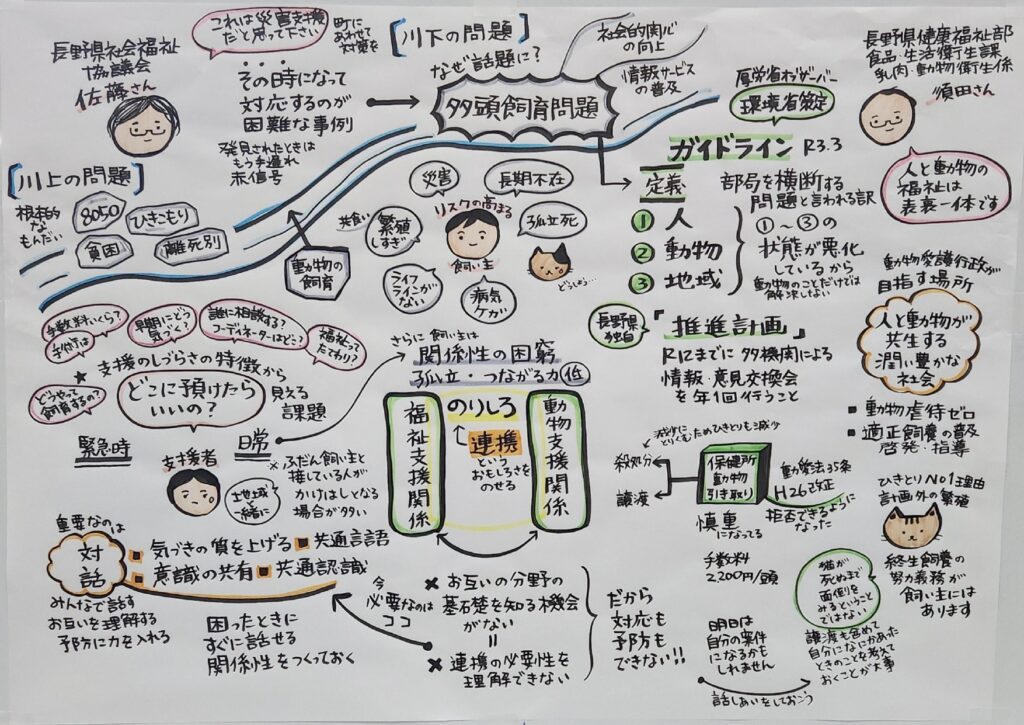 長野県社会福祉
協議会
佐藤さん
これは災害支援
だと思って下さい
町に
あわせて
対策を
その時になって
対応するのが
困難な事例
発見されたときは
もう手遅れ
赤信号
【川下の問題】
なぜ話題に?
多頭飼育問題
社会的関心
の向上
情報サービス
の普及
厚労省オブザーバー
環境省策定
長野県健康福祉部
食品・生活衛生課
乳肉・動物衛生係
須田さん
人と動物の
福祉は
表裏一体です
【川上の問題】
根本的
な
もんだい
8050
ひきこもり
貧困
離死別
動物の
飼育
災害
長期不在
共食い
繁殖
しすぎ
リスクの高まる
飼い主
孤立死
ライフ
ラインが
ない
病気
ケガ
どうしよう…
ガイドライン R3.3
定義
① 人
② 動物
③ 地域
部局を横断する
問題と言われる訳
①~③の
状態が悪化
しているから
動物のことだけでは
解決しない
長野県
独自
「推進計画」
R12までに多機関による
情報・意見交換会
を年1回行うこと
動物愛護行政が
目指す場所
人と動物が
共生する
潤い豊かな
社会
■動物虐待ゼロ
■適正飼養の普及
啓発・指導
手数料いくら?
手付けは
早期にどう
気づく?
誰に相談する?
コーディネーターはどこ?
福祉って
たてわり?
★支援のしづらさの特徴から
見える
課題
どうやって
飼育するの?
どこに預けたら
いいの?
緊急時
日常
支援者
地域
一緒に
×ふだん飼い主と
接している人が
かけはしとなる
場合が多い
さらに飼い主は
関係性の困窮
孤立・つながる力低
福祉支援関係
のりしろ
連携
という
おもしろさを
のせる
動物支援関係
減少に
とりくむためひきとりも減少
殺処分
譲渡
保健所
動物
引き取り
動愛法35条
H26改正
拒否できるように
なった
慎重
になってる
手数料
2,200円/頭
ひきとりNo1理由
計画外の繁殖
終生飼養の
努力義務が
飼い主には
あります
猫が
死ぬまで
面倒を
みるということ
ではない
譲渡も含めて
自分になにかあった
ときのことを考えて
おくことが大事
明日は
自分の案件
になるかも
しれません
話しあいをしておこう
重要なのは
対話
■気づきの質を上げる■共通言語
■意識の共有■共通認識
みんなで話す
お互いを理解する
予防に力を入れる
困ったときに
すぐに話せる
関係性をつくっておく
今
必要なのは
ココ
×お互いの分野の
基礎を知る機会
がない
=
×連携の必要性を
理解できない
だから
対応も
予防も
できない!!